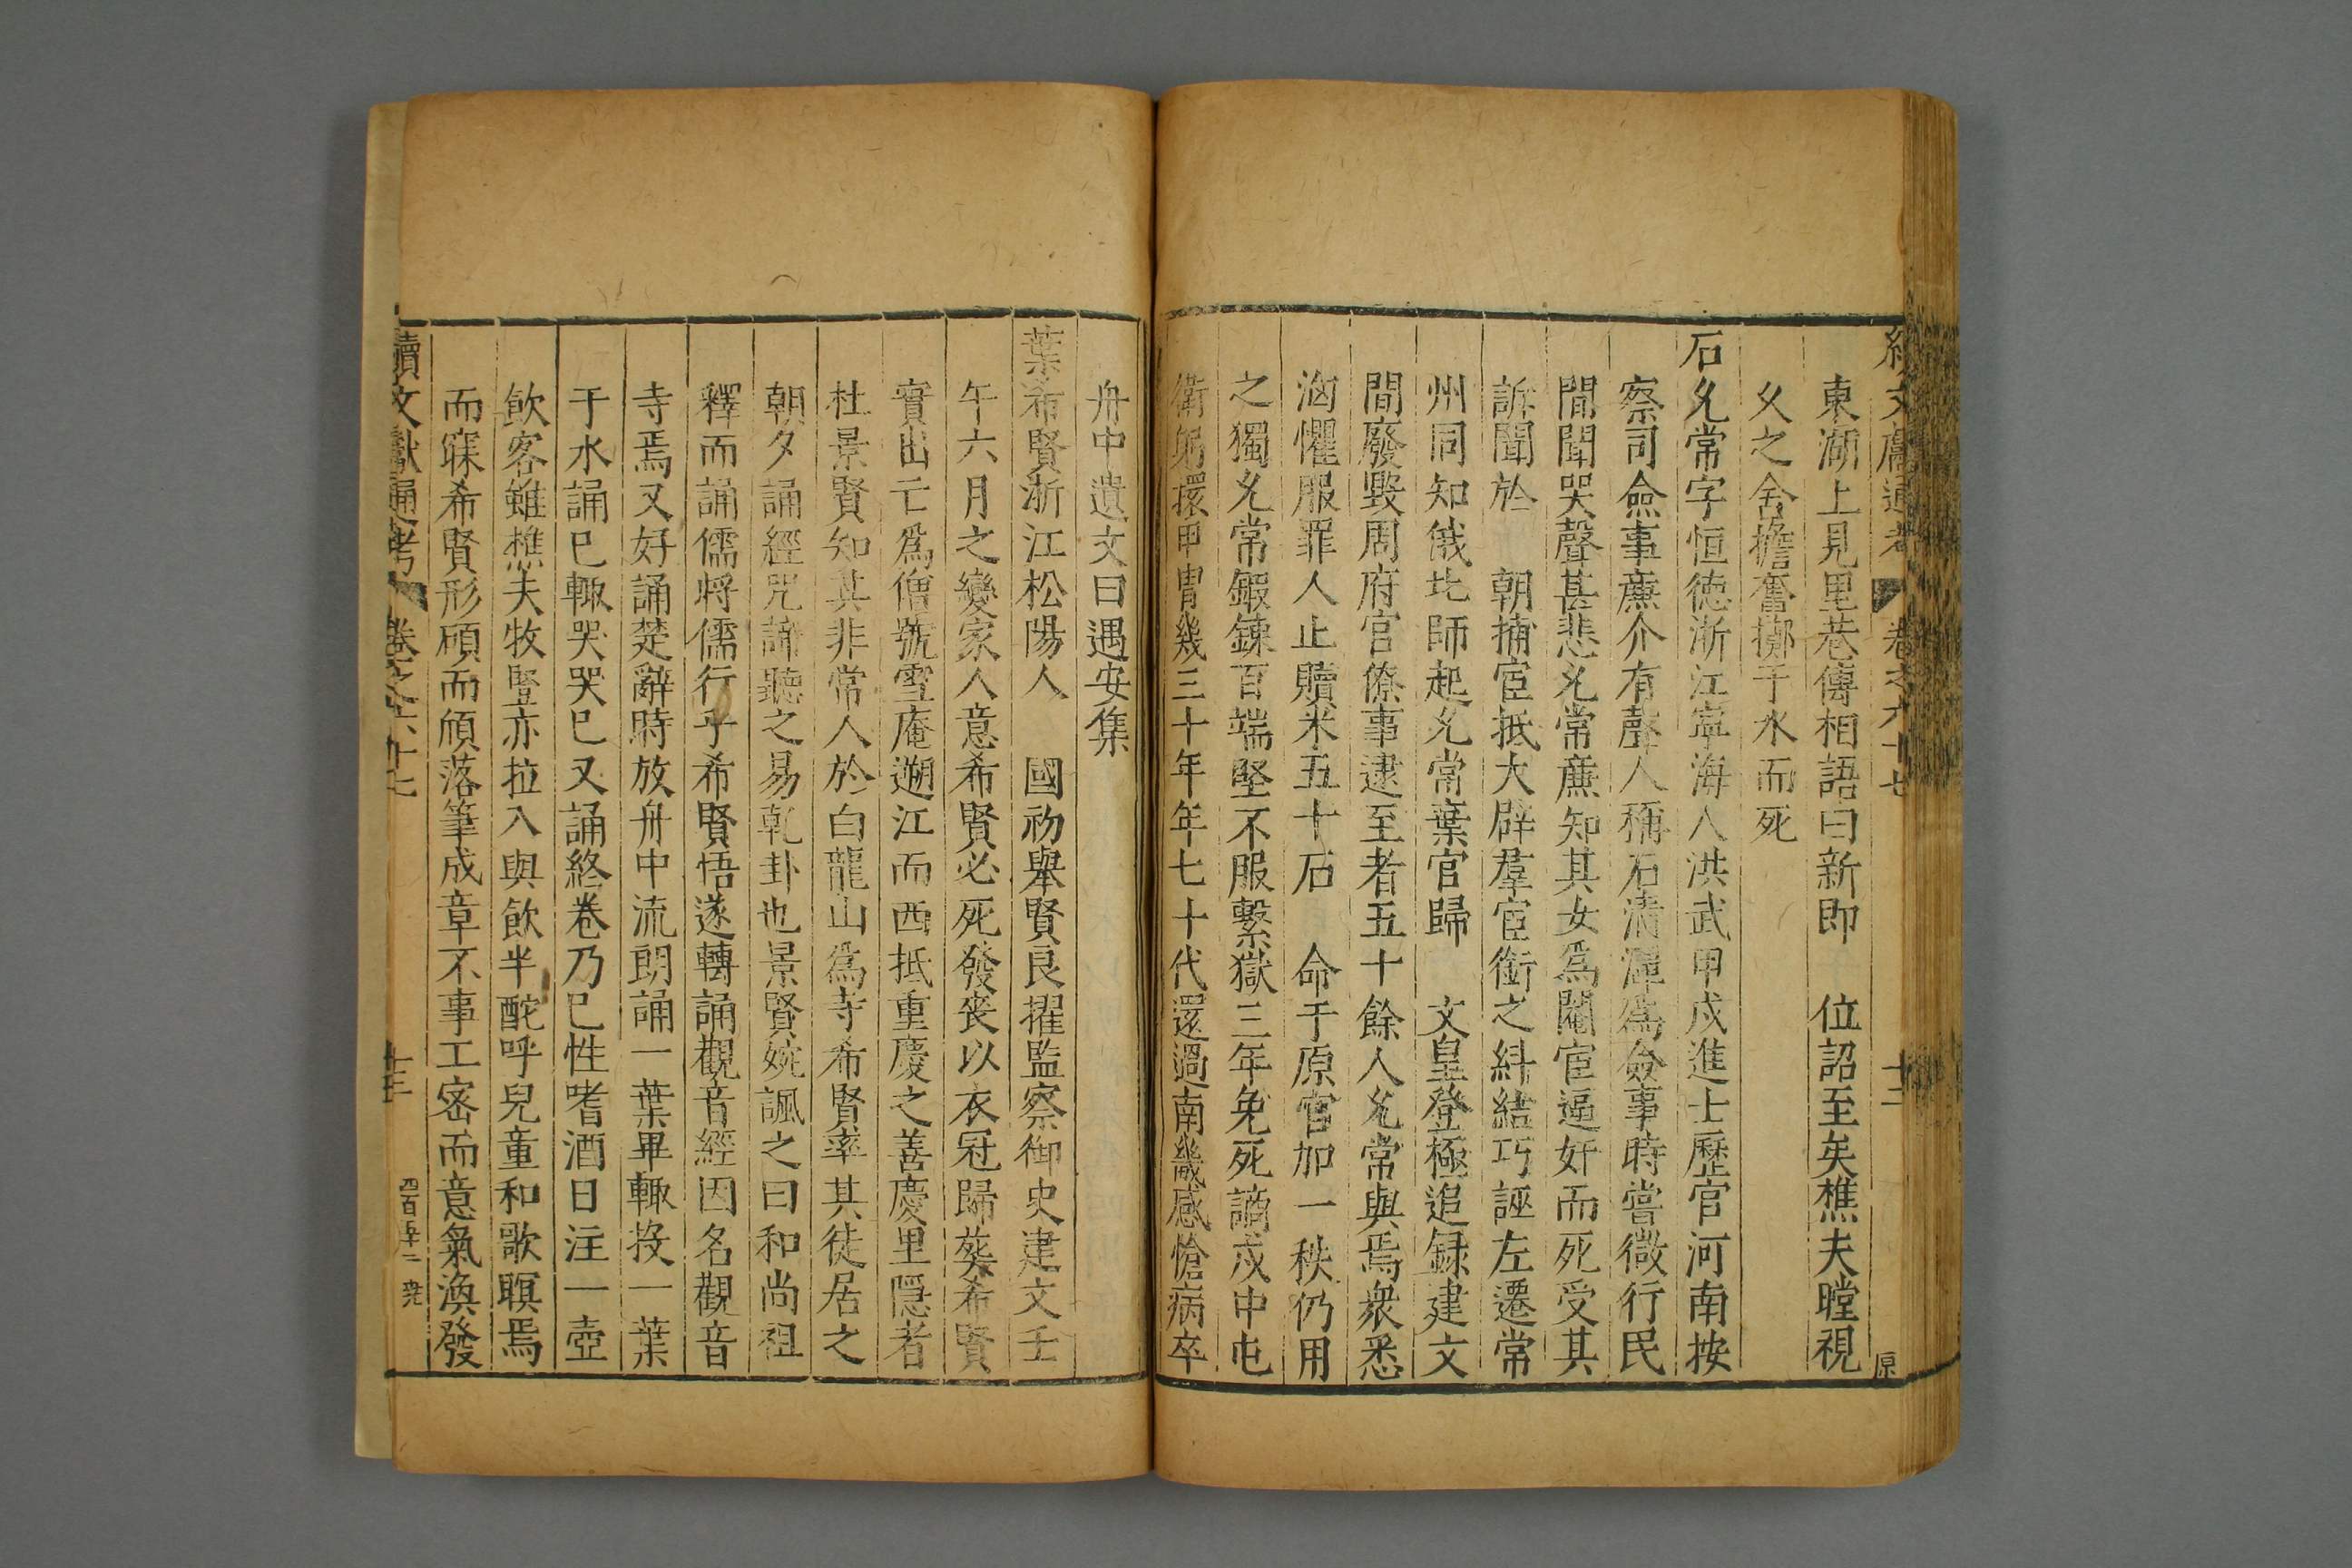 續文獻通考 卷之六十七 十二 原
東湖上見里巷傳相語曰新即 位詔至矣樵夫瞠視
乆之舍擔奮擲于水而死
石允常字恒德浙江寧海人洪武甲戍進士歷官河南按
察司僉事亷介有聲人稱石清潭爲僉事時嘗微行民
間聞哭聲甚悲允常亷知其女爲閹宦逼奸而死受其
訴聞於 朝捕宦抵大辟羣宦銜之紏結巧誣左遷常
州同知俄北師起允常棄官歸 文皇登極追録建文
間廢毀周府官僚事逮至者五十餘人允常與焉衆悉
洶懼服罪人止贖米五十石 命于原官加一秩仍用
之獨允常鍛鍊百端堅不服繫獄三年免死謫戍中屯
衛躬擐甲胄幾三十年年七十代還過南畿感愴病卒
舟中遺文曰遇安集
葉希賢浙江松陽人 國初舉賢良擢監察御史建文壬
午六月之變家人意希賢必死發喪以衣冠歸葬希賢
實出亡爲僧號雪庵遡江而西抵重慶之善慶里隱者
杜景賢知其非常人於白龍山爲寺希賢率其徒居之
朝夕誦經咒諦聽之易乾卦也景賢婉諷之曰和尚祖
釋而誦儒將儒行乎希賢悟遂轉誦觀音經因名觀音
寺焉又好誦楚辭時放舟中流朗誦一葉畢輙投一葉
于水誦已輙哭哭已又誦終卷乃已性嗜酒日注一壺
飲客雖樵夫牧豎亦拉入與飲半酡呼兒童和歌暝焉
而寐希賢形頎而頎落筆成章不事工密而意氣渙發
續文獻通考 卷之六十七 十三 四百五十二